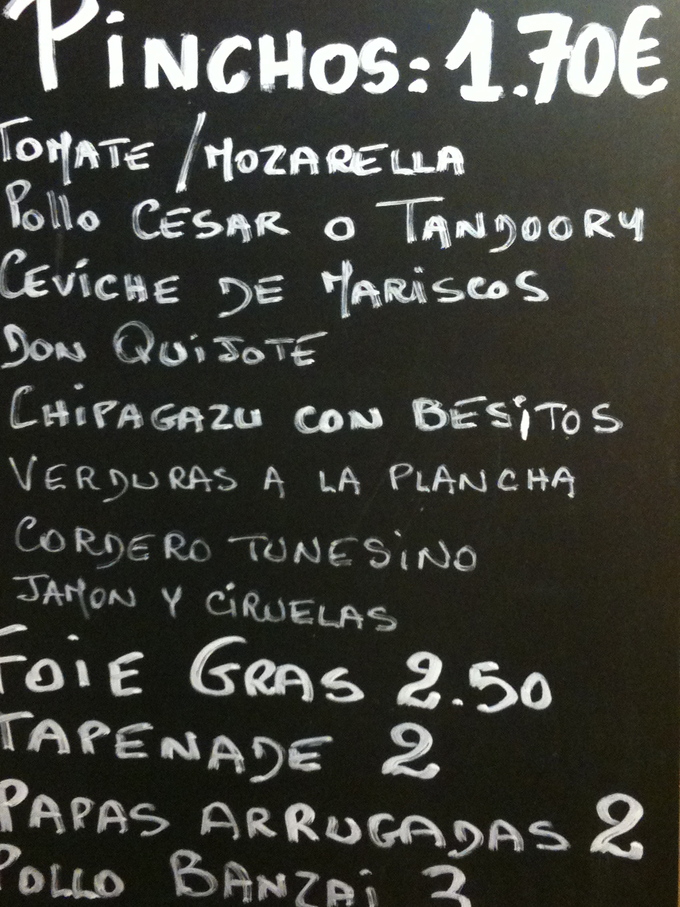 PINCHOS: 1.70€
TOMATE / MOZARELLA
Pollo CESAR O TANDOORY
CEVICHE DE MARISCOS
DON QUIJOTE
CHIPAGAZU CON BESITOS
VERDURAS A LA PLANCHA
CORDERO TUNESINO
JAMON Y CIRUELAS
FOIE GRAS 2.50
TAPENADE 2
PAPAS ARRUGADAS 2
POLLO BANZAI 3